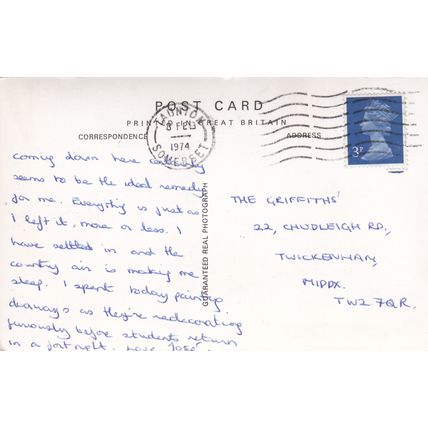 POST CARD
PRINTED IN GREAT BRITAIN
CORRESPONDENCE
ADDRESS
TAUNTON
8 FEB
1974
SOMERSET
3P
coming down here certainly
seems to be the ideal remedy
for me. Everything is just as
I left it, more or less. I
have settled in and the
country air is making me
sleep. I spent today painting
doorways as they're redecorating
furiously before students return
in a fortnight. Love
GUARANTEED REAL PHOTOGRAPH
THE GRIFFITHS'
22, CHUDLEIGH RD,
TWICKENHAM,
MIDDX.
TW2 7QR.